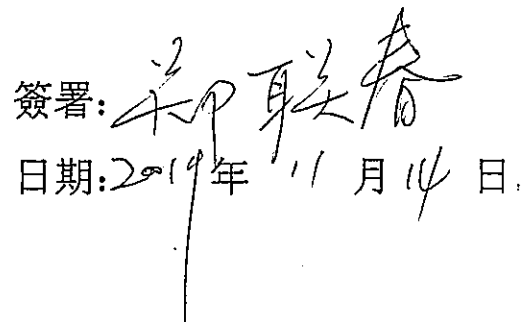 簽署:郑联春
日期:2019年 11 月 14 日.